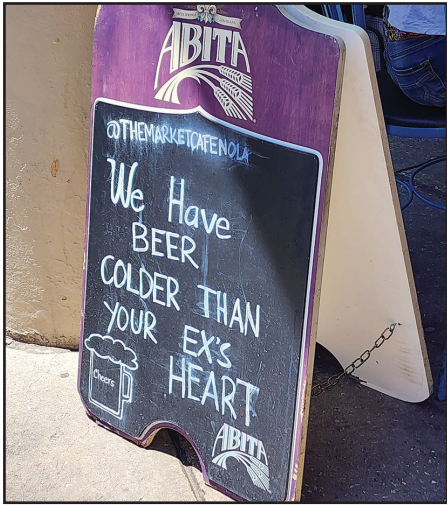 ABITA
@THEMARKETCAFENOLA
We Have
BEER
COLDER THAN
YOUR EX'S
HEART
Cheers
ABITA